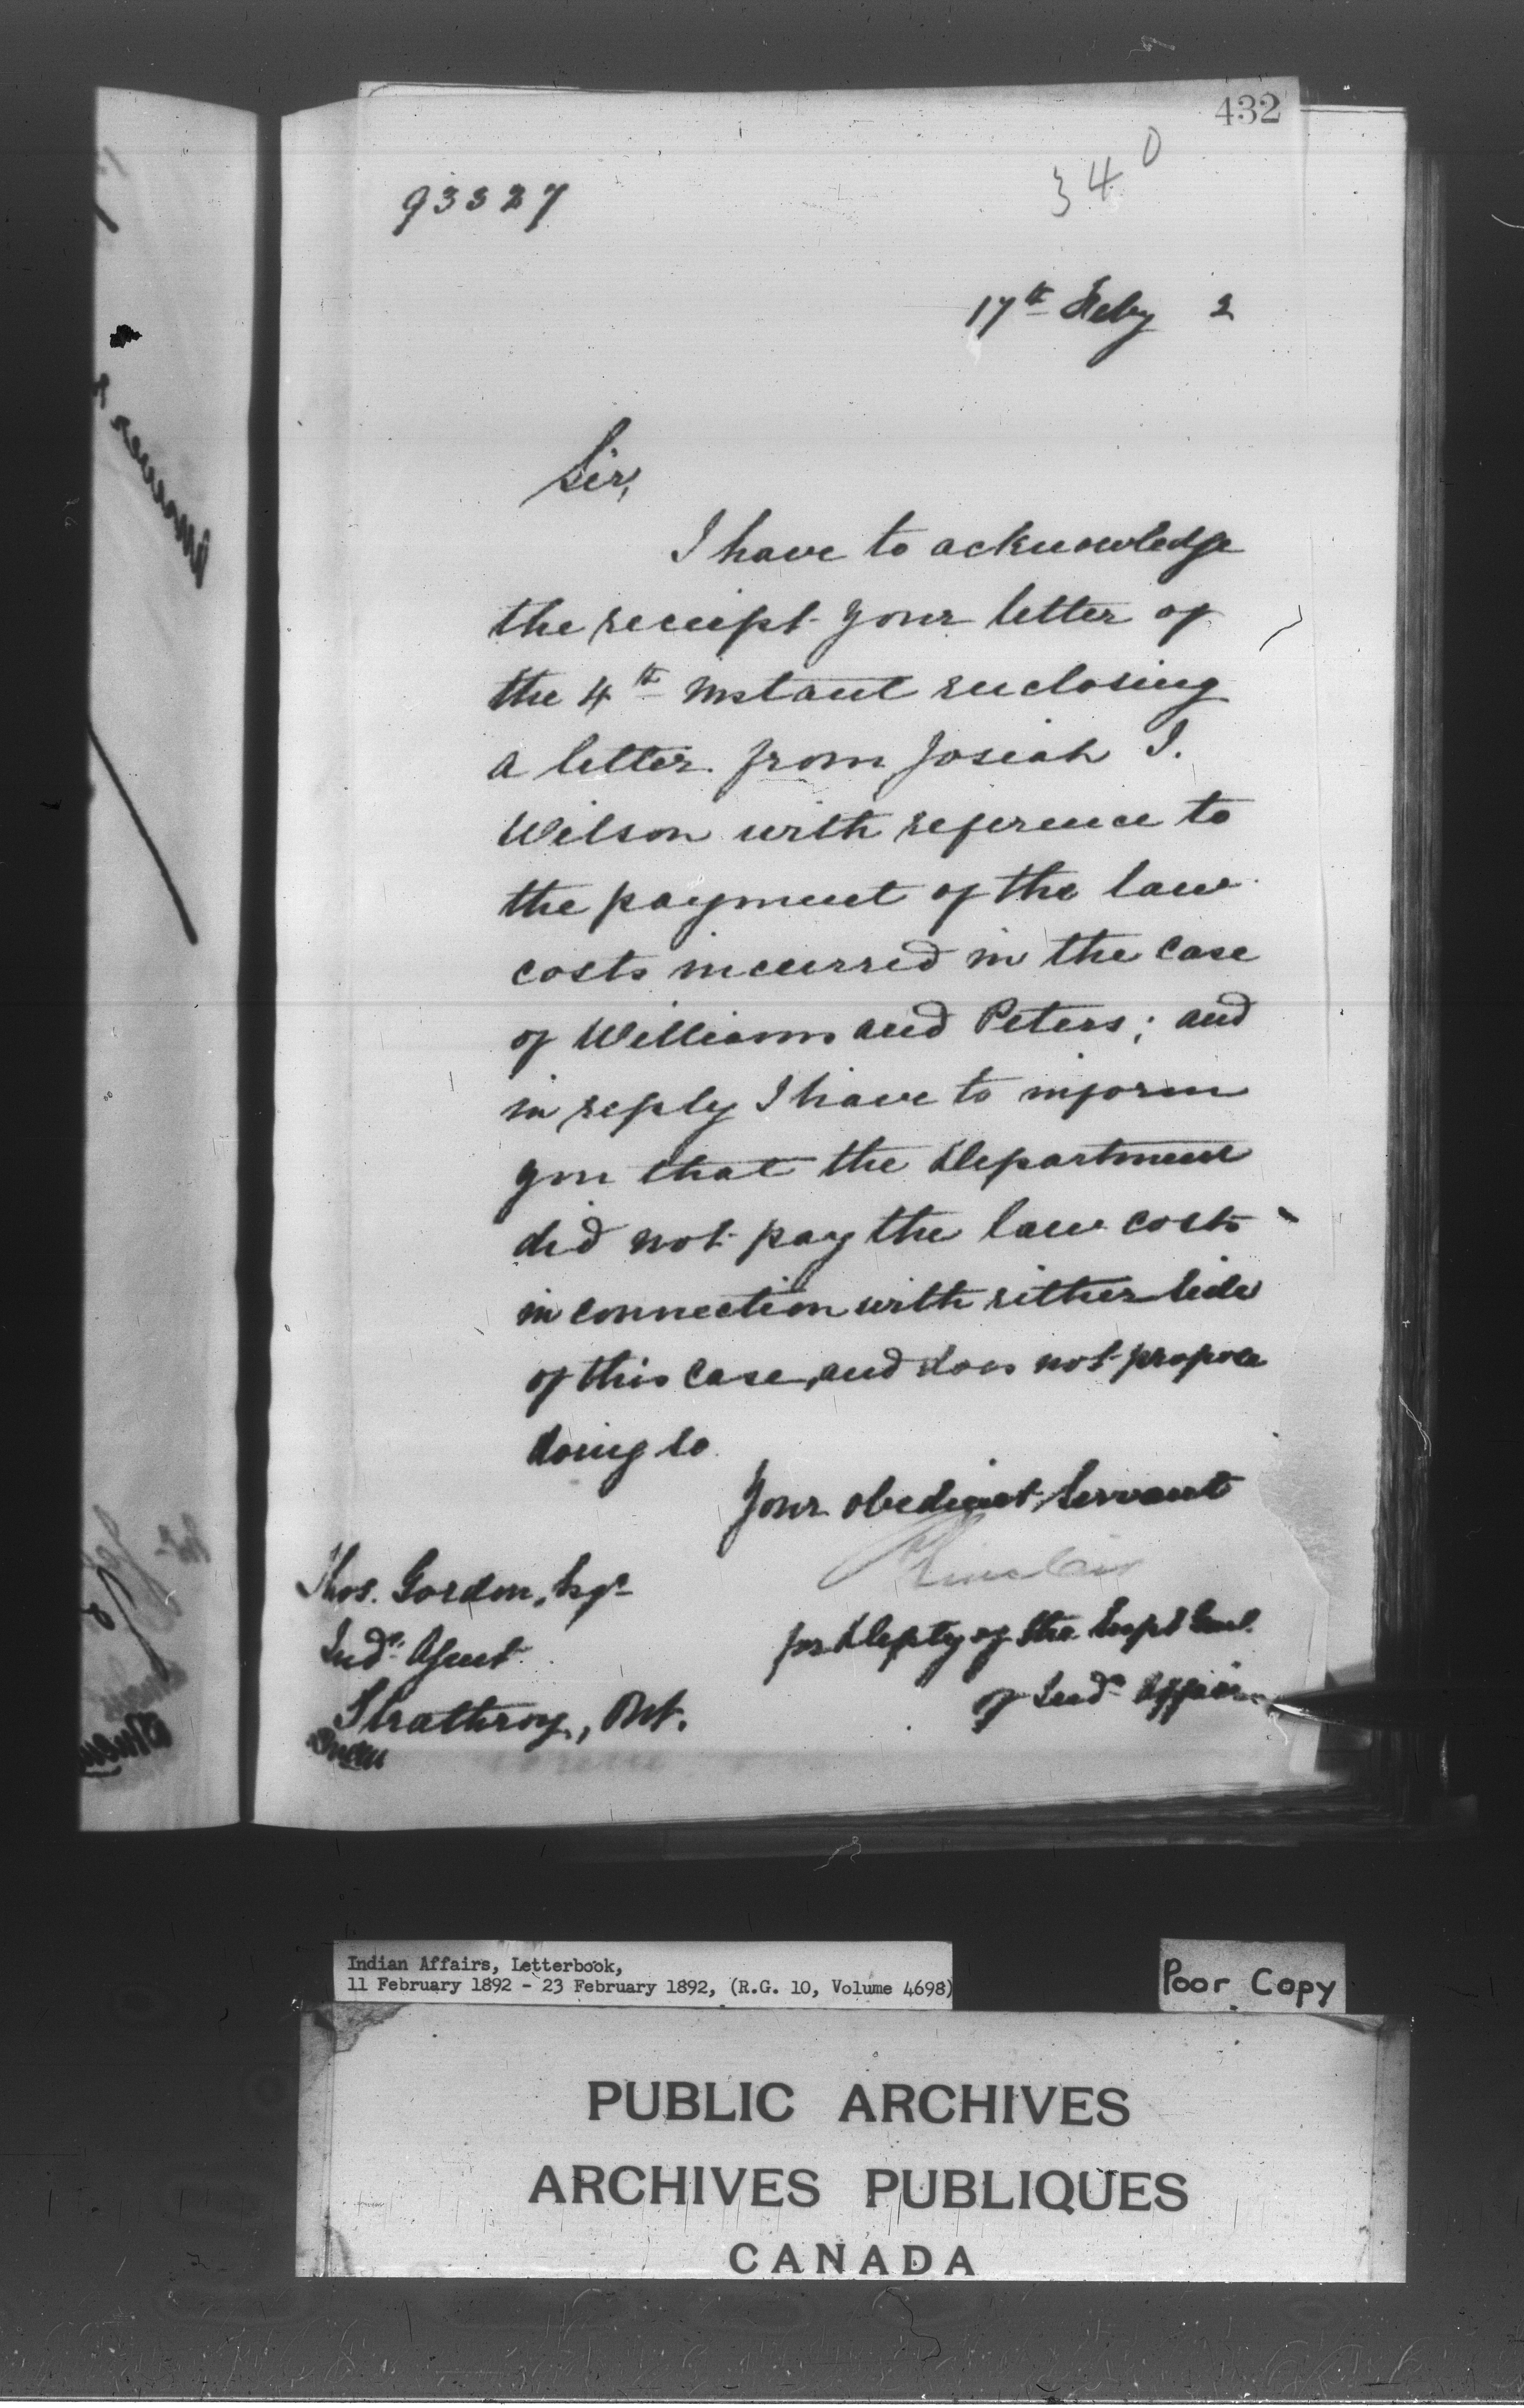 432
340
93327
17th Feby 2
Sir,
I have to acknowledge
the receipt your letter of
the 4th instant enclosing
a letter from Josiah I.
Wilson with reference to
the payment of the law
costs incurred in the case
of Williams and Peters; and
in reply I have to inform
you that the Department
did not pay the law costs
in connection with either side
of this case, and does not propose
doing so
Your obedient Servant
Sinclair
for Depty of the Supt Genl.
of Indn Affairs
Thos. Gordon, Esqr
Indn Agent
Strathroy, Ont.
Indian Affairs, Letterbook,
11 February 1892 - 23 February 1892, (R.G. 10, Volume 4698)
Poor Copy
PUBLIC ARCHIVES
ARCHIVES PUBLIQUES
CANADA